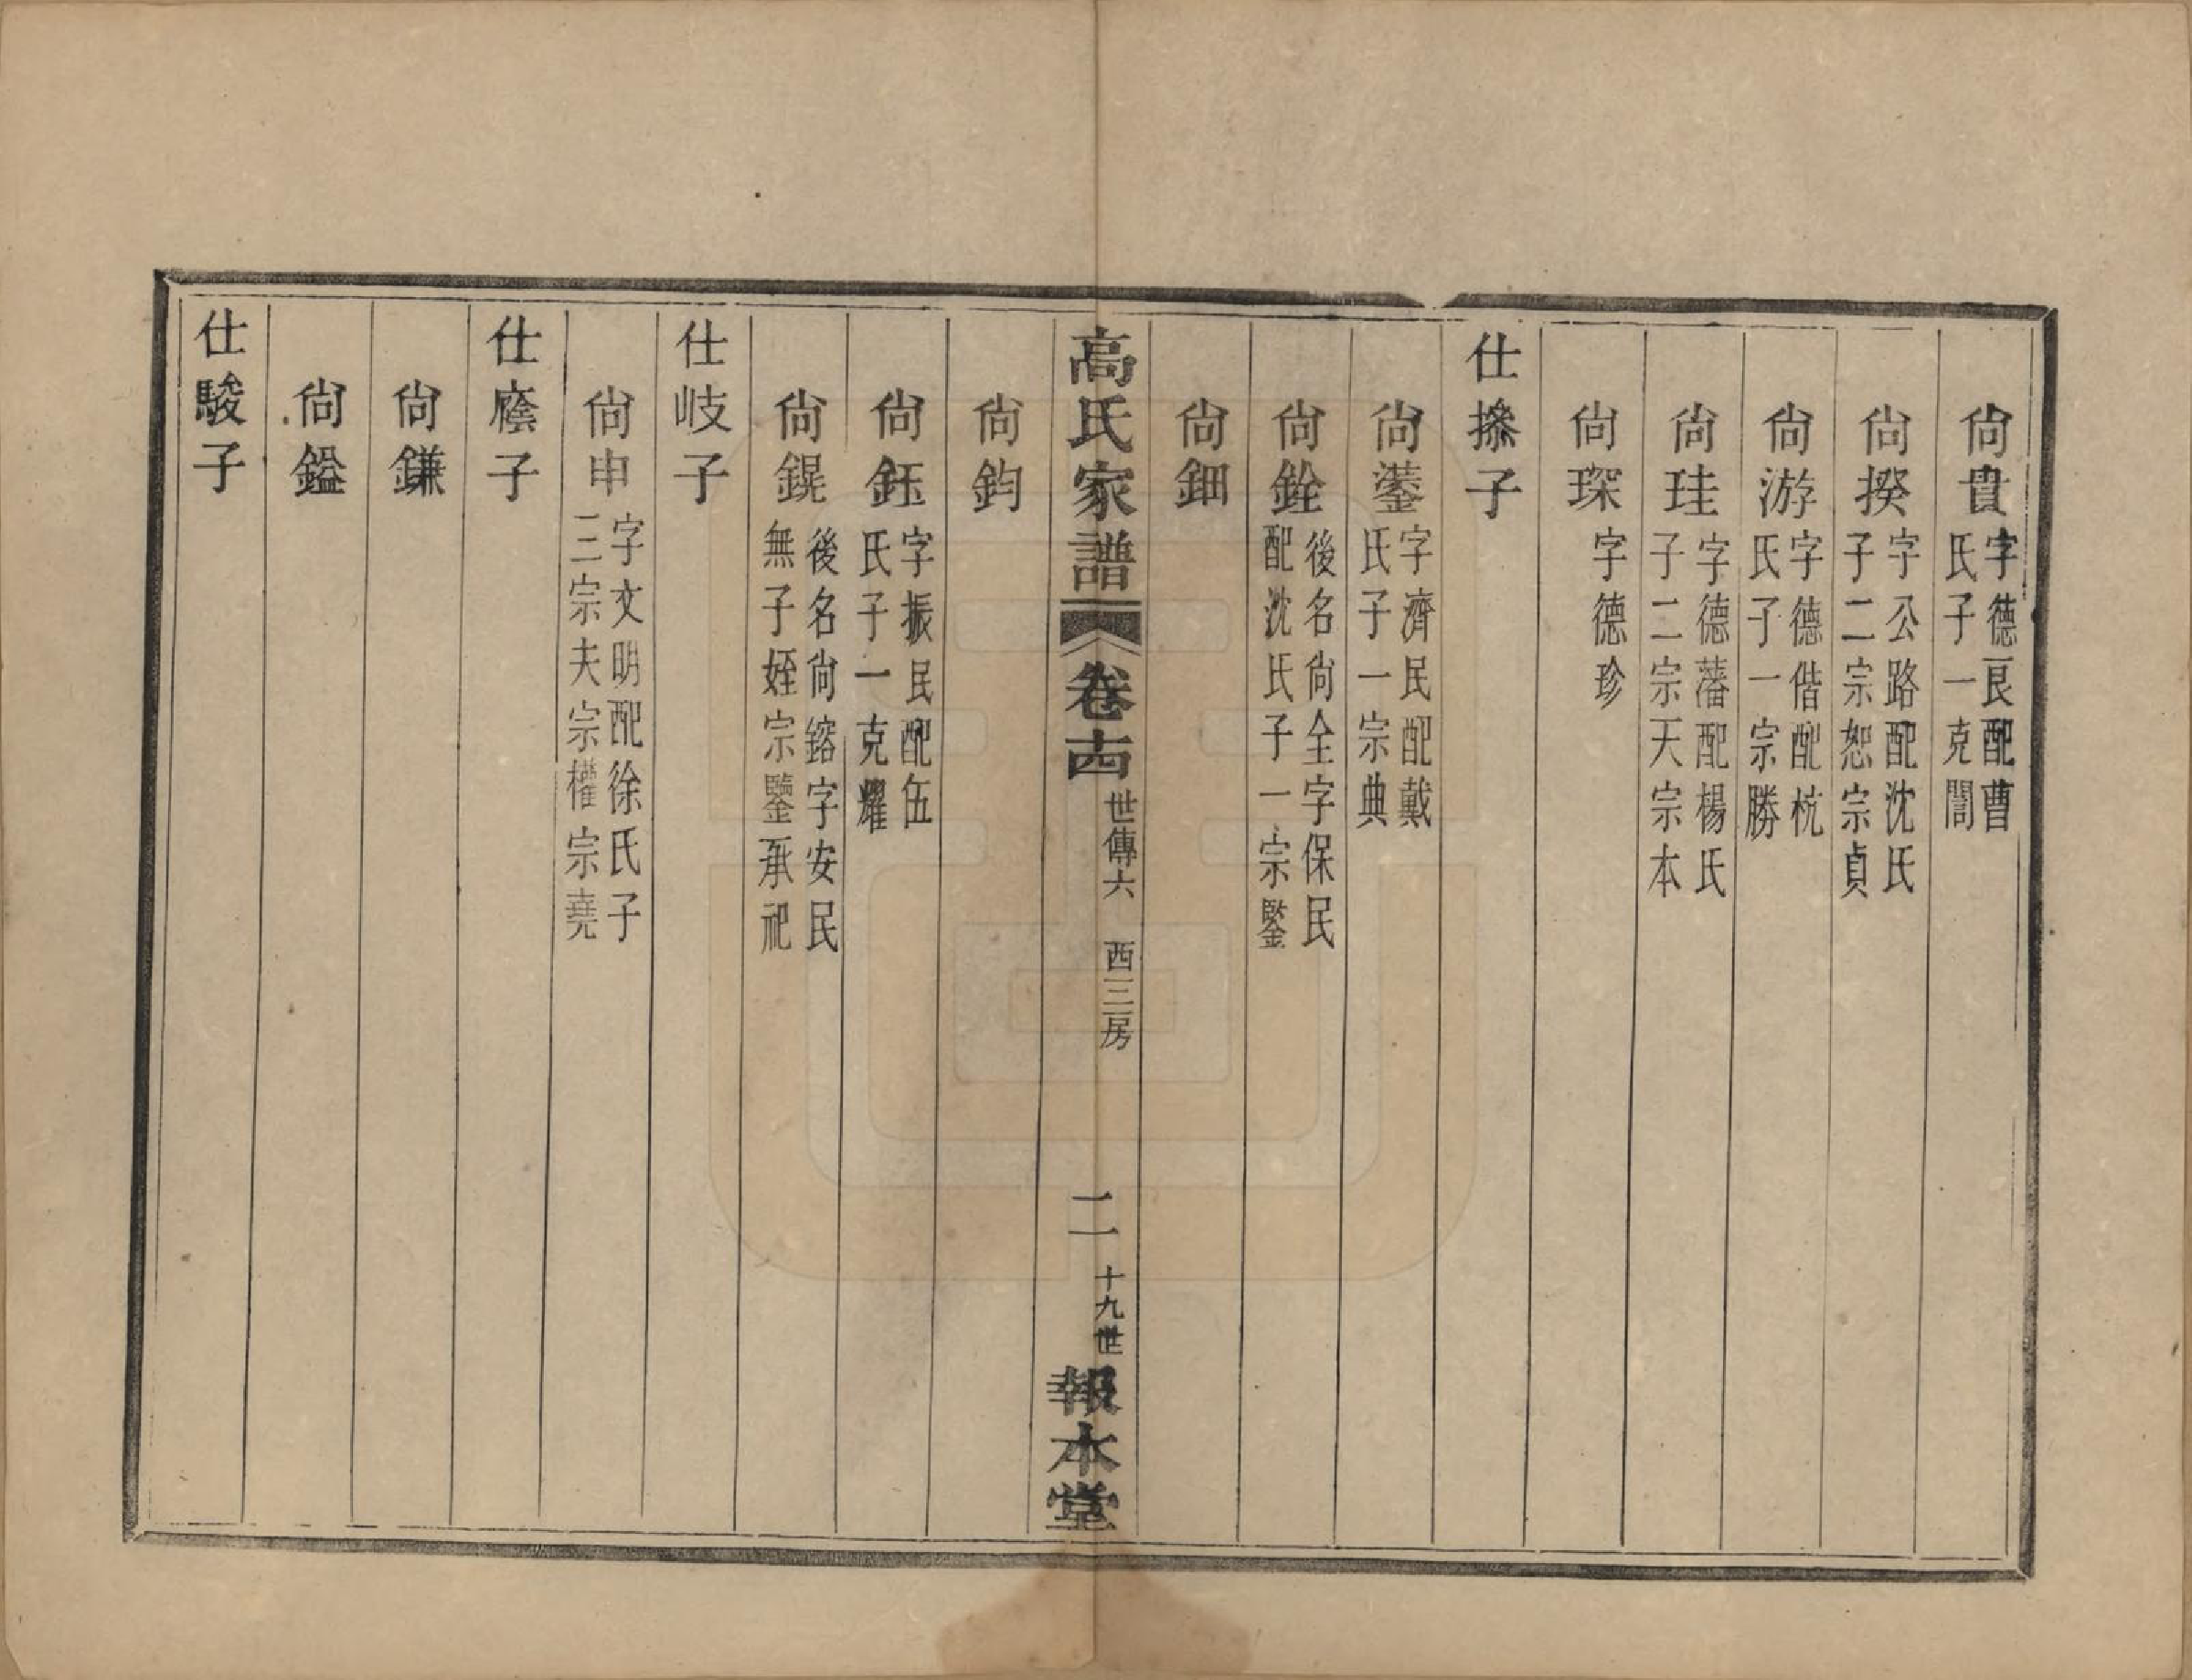 尙貴字德㫐配曹
氏子一克誾
尙揆字公路配沈氏
子二宗恕宗貞
尙游字德偕配杭
氏子一宗勝
尙珪字德藩配楊氏
子二宗天宗本
尙琛字德珍
仕摻子
尙蓥字濟民配戴
氏子一宗典
尙銓後名尙全字保民
配沈氏子一宗鋻
尙鈿
高氏家譜 卷十四 世傳六 西三房 二 十九世 報本堂
尙鈞
尙鈺字振民配伍
氏子一克耀
尙錕後名尙鎔字安民
無子姪宗鑒承祀
仕岐子
尙申字文明配徐氏子
三宗夫宗權宗堯
仕廕子
尙鎌
尙鎰
仕駿子